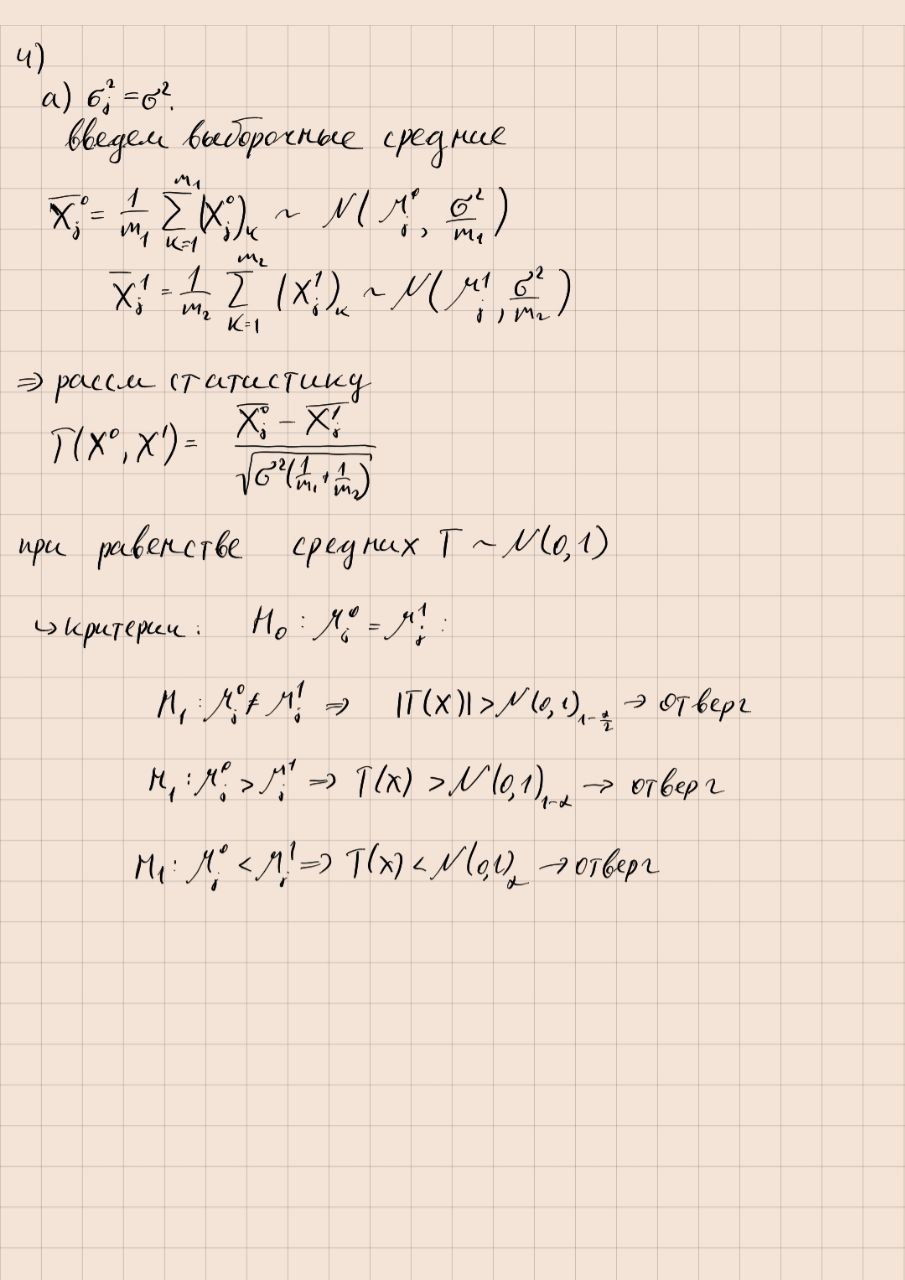 4)
а) σ_j^2 = σ^2.
введем выборочные средние
\overline{X}_j^0 = \frac{1}{m_1} \sum_{k=1}^{m_1} (X_j^0)_k ~ N(μ_j^0, \frac{σ^2}{m_1})
\overline{X}_j^1 = \frac{1}{m_2} \sum_{k=1}^{m_2} (X_j^1)_k ~ N(μ_j^1, \frac{σ^2}{m_2})
⇒ рассм статистику
T(X^0, X^1) = \frac{\overline{X_j^0} - \overline{X_j^1}}{\sqrt{σ^2(\frac{1}{m_1} + \frac{1}{m_2})}}
при равенстве средних T ~ N(0,1)
↳ критерии: H_0 : μ_j^0 = μ_j^1 :
H_1 : μ_j^0 ≠ μ_j^1 ⇒ |T(X)| > N(0,1)_{1-\frac{α}{2}} → отверг
H_1 : μ_j^0 > μ_j^1 ⇒ T(x) > N(0,1)_{1-α} → отверг
H_1 : μ_j^0 < μ_j^1 ⇒ T(x) < N(0,1)_α → отверг